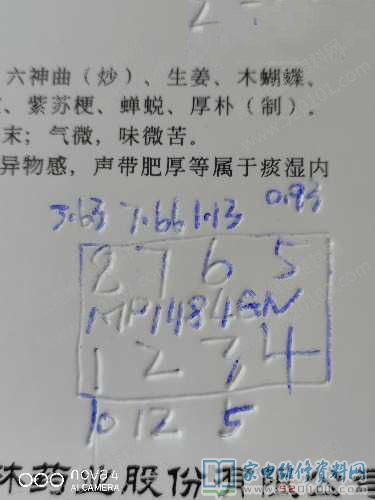 六神曲（炒）、生姜、木蝴蝶、
紫苏梗、蝉蜕、厚朴（制）。
末；气微，味微苦。
异物感，声带肥厚等属于痰湿内
3.63 7.66 1.13 0.93
8 7 6 5
MP1484EN
1 2 3 4
10 12 5
药 股份
SHOT ON nova4
AI CAMERA
家电维修资料网